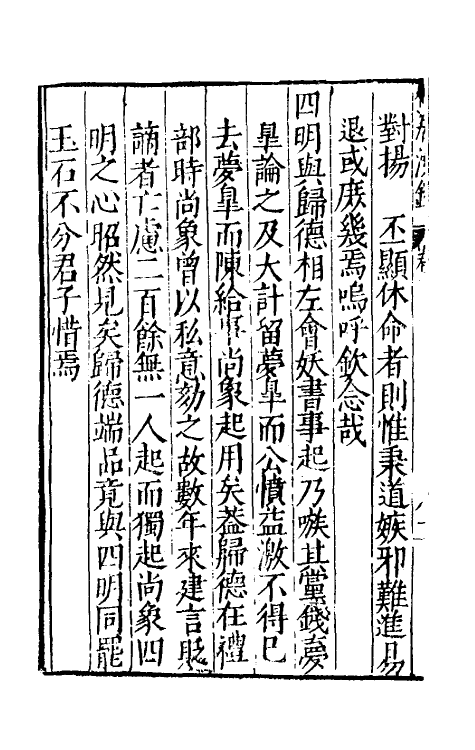 對揚　丕顯休命者則惟秉道嫉邪難進易
退或庶幾焉嗚呼欽念哉
四明與歸德相左會妖書事起乃嗾其黨錢夢
臯論之及大計留夢臯而公憤益激不得已
去夢臯而陳給事尚象起用矣葢歸德在禮
部時尚象曾以私意劾之故數年來建言貶
謫者亡慮二百餘無一人起而獨起尚象四
明之心昭然見矣歸德端品竟與四明同罷
玉石不分君子惜焉